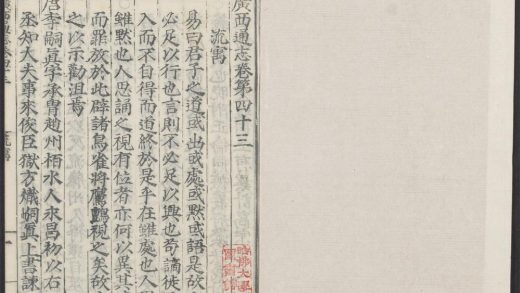 廣西通志卷第四十三
流寓
易曰君子之道或出或處或默或語是故
必足以行也言則不必足以興也苟謫徙
入而不自得而道終於是乎在雖處也人
雖默也人思誦之視有位者亦何以異其
而罪放於此辟諸鳥雀將鸞視之矣故
之以示勸沮焉
唐李嗣真字承冑趙州栢水人永昌初以右
丞知大夫事來俊臣獄方熾嗣真上書諫